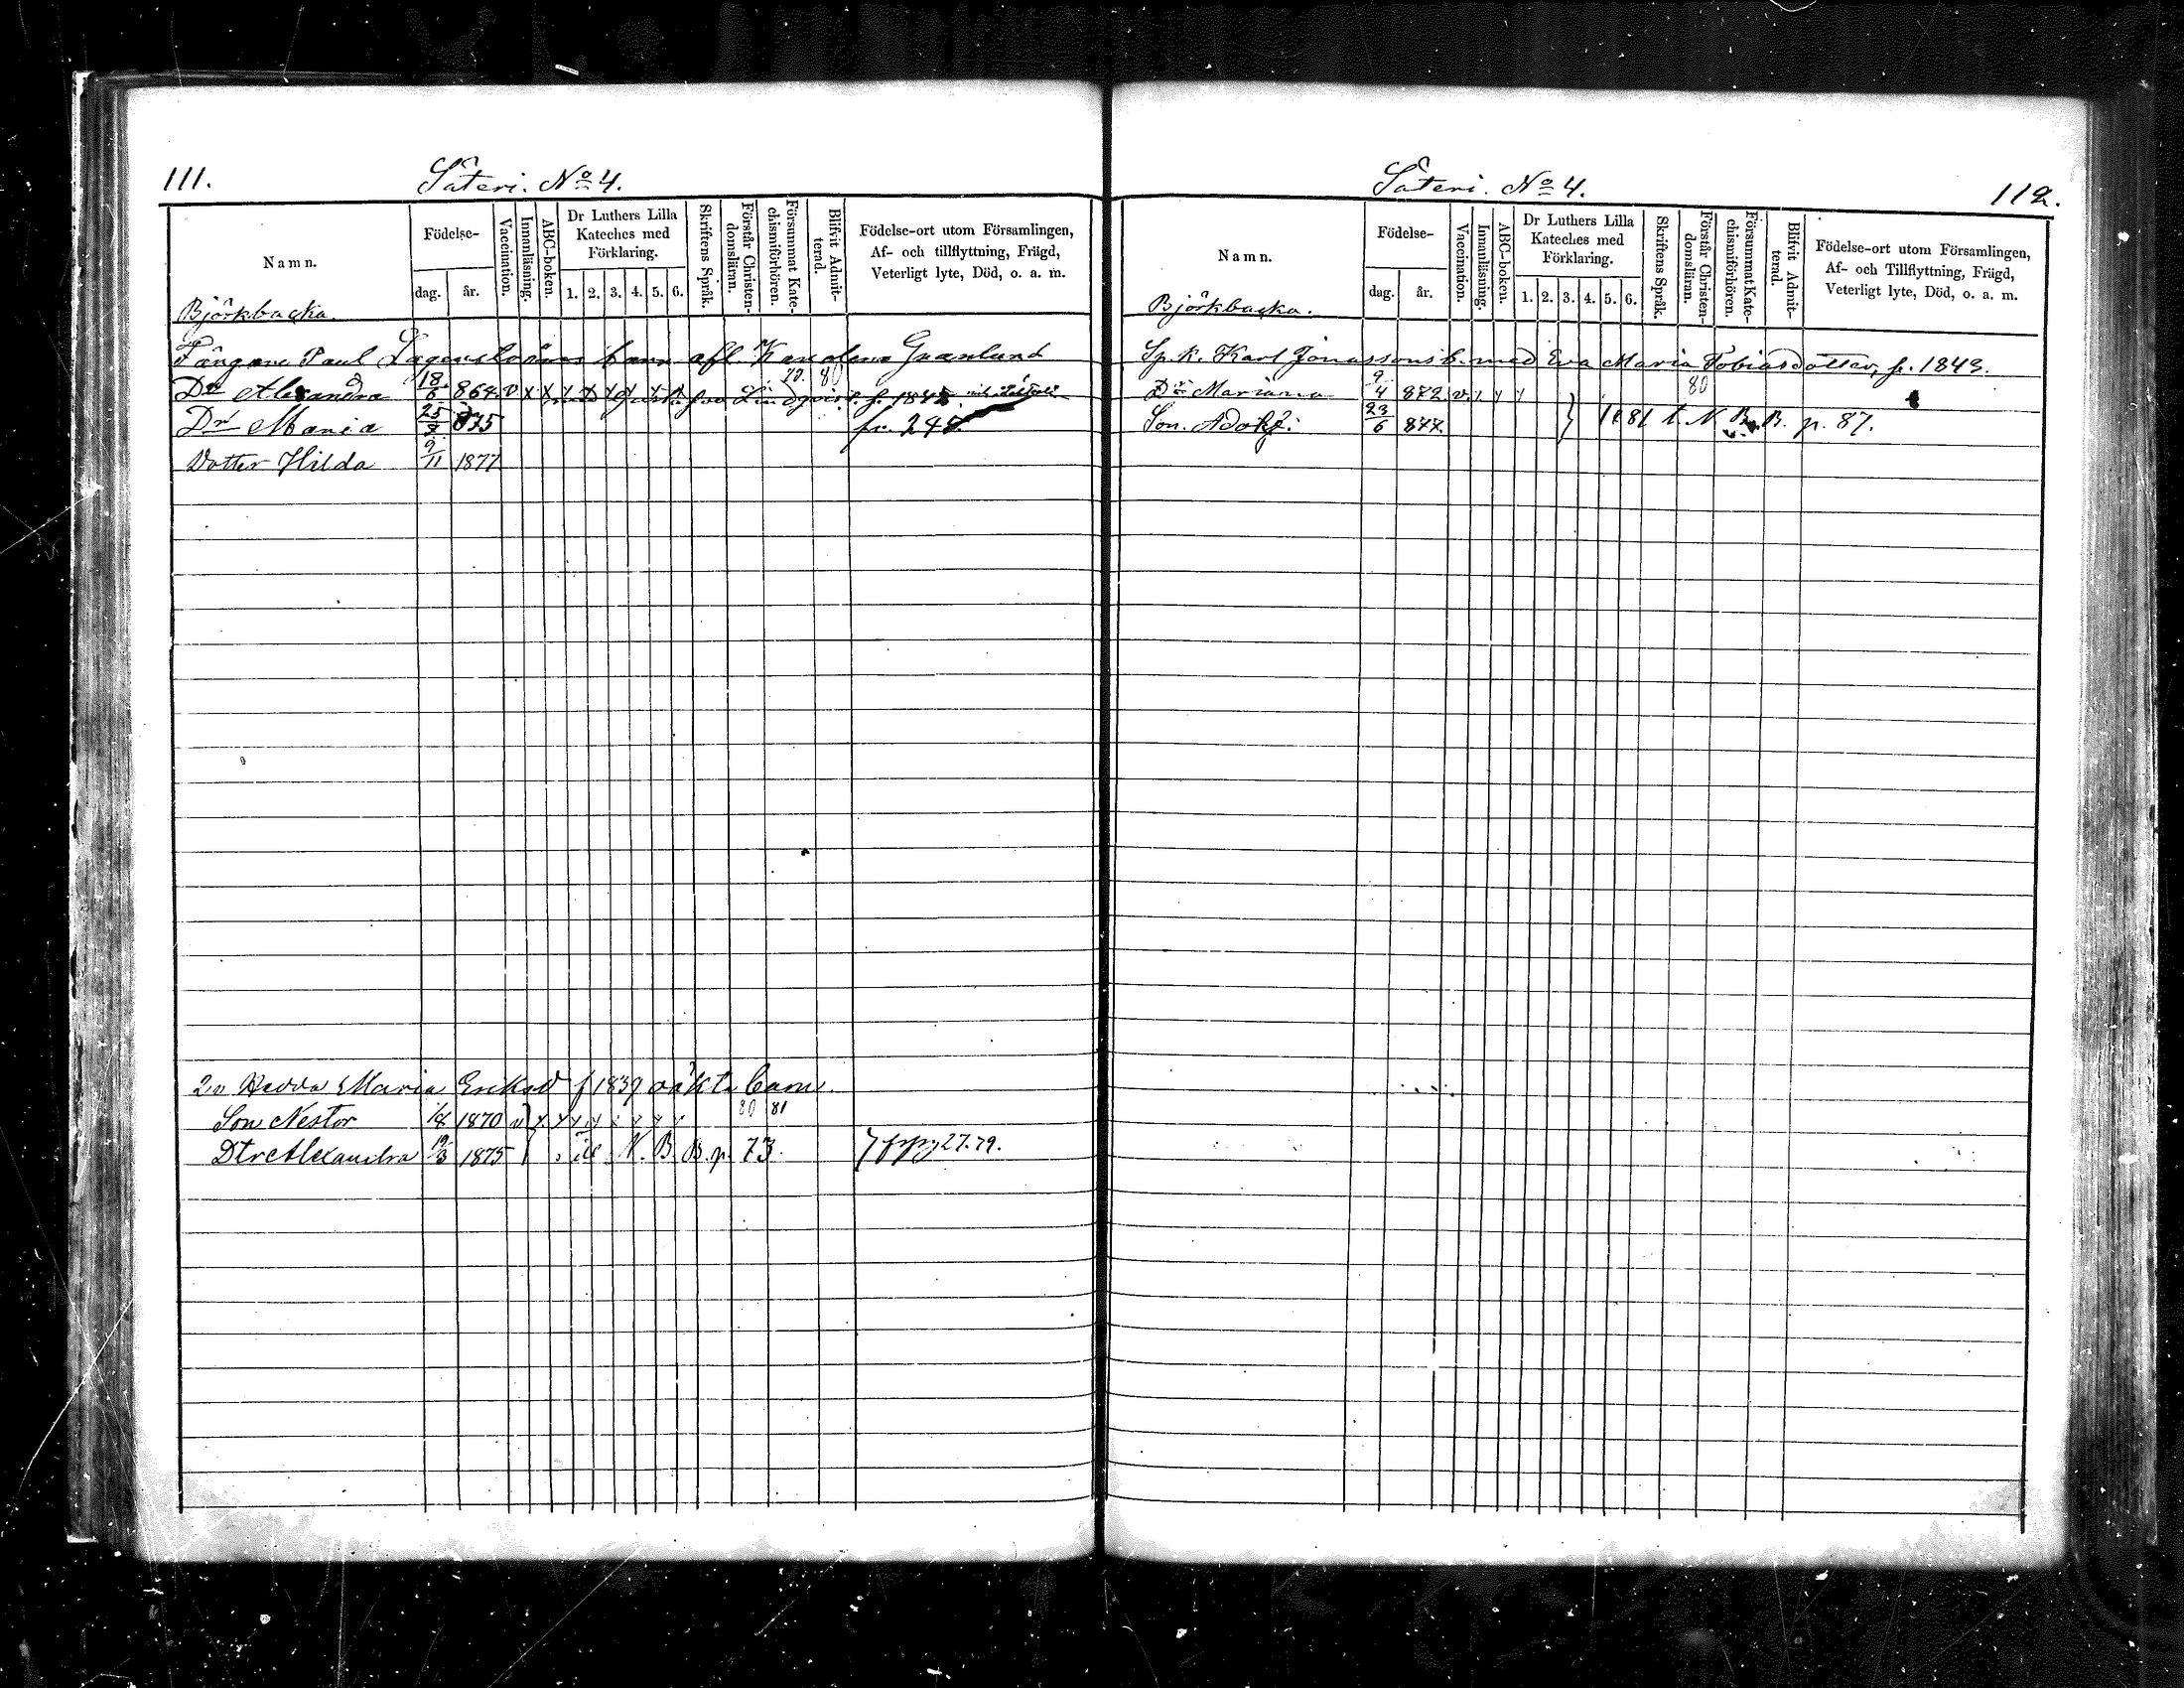 111. Säteri. No 4.
Namn.
Födelse-
dag. år.
Vaccination.
Innanläsning.
ABC-boken.
Dr Luthers Lilla
Kateches med
Förklaring.
1. 2. 3. 4. 5. 6.
Skriftens Språk.
Förstår Christen-
domsläran.
Försummat Kate-
chismiförhören.
Blifvit Admit-
terad.
Födelse-ort utom Församlingen,
Af- och tillflyttning, Frägd,
Veterligt lyte, Död, o. a. m.
Björkbacka.
Fångne Paul barn afl. Karolina Granlund
79. 80
Dr Alexandra 18/6 864. v x x x x x x x x Lindqvist f. 1845
Dr Maria 25/7 875 fr. 248
Dotter Hilda 9/11 1877
2o Hedda Maria Eriksd f 1839 oäkta barn
80 81
Son Nestor 1/8 1870 v x x x x x x x
Dtr Alexandra 19/3 1875 } till N. B. B. p. 73. 27.79.
Säteri. No 4. 112.
Namn.
Födelse-
dag. år.
Vaccination.
Innanläsning.
ABC-boken.
Dr Luthers Lilla
Kateches med
Förklaring.
1. 2. 3. 4. 5. 6.
Skriftens Språk.
Förstår Christen-
domsläran.
Försummat Kate-
chismiförhören.
Blifvit Admit-
terad.
Födelse-ort utom Församlingen,
Af- och Tillflyttning, Frägd,
Veterligt lyte, Död, o. a. m.
Björkbacka.
Sp. k. Karl Jonassons b. med Eva Maria Tobiasdotter, f. 1843.
Dr Mariana 9/4 872 v. y y y 80
Son. Adolf. 23/6 877. } 1881 t. N. B. B. p. 87.